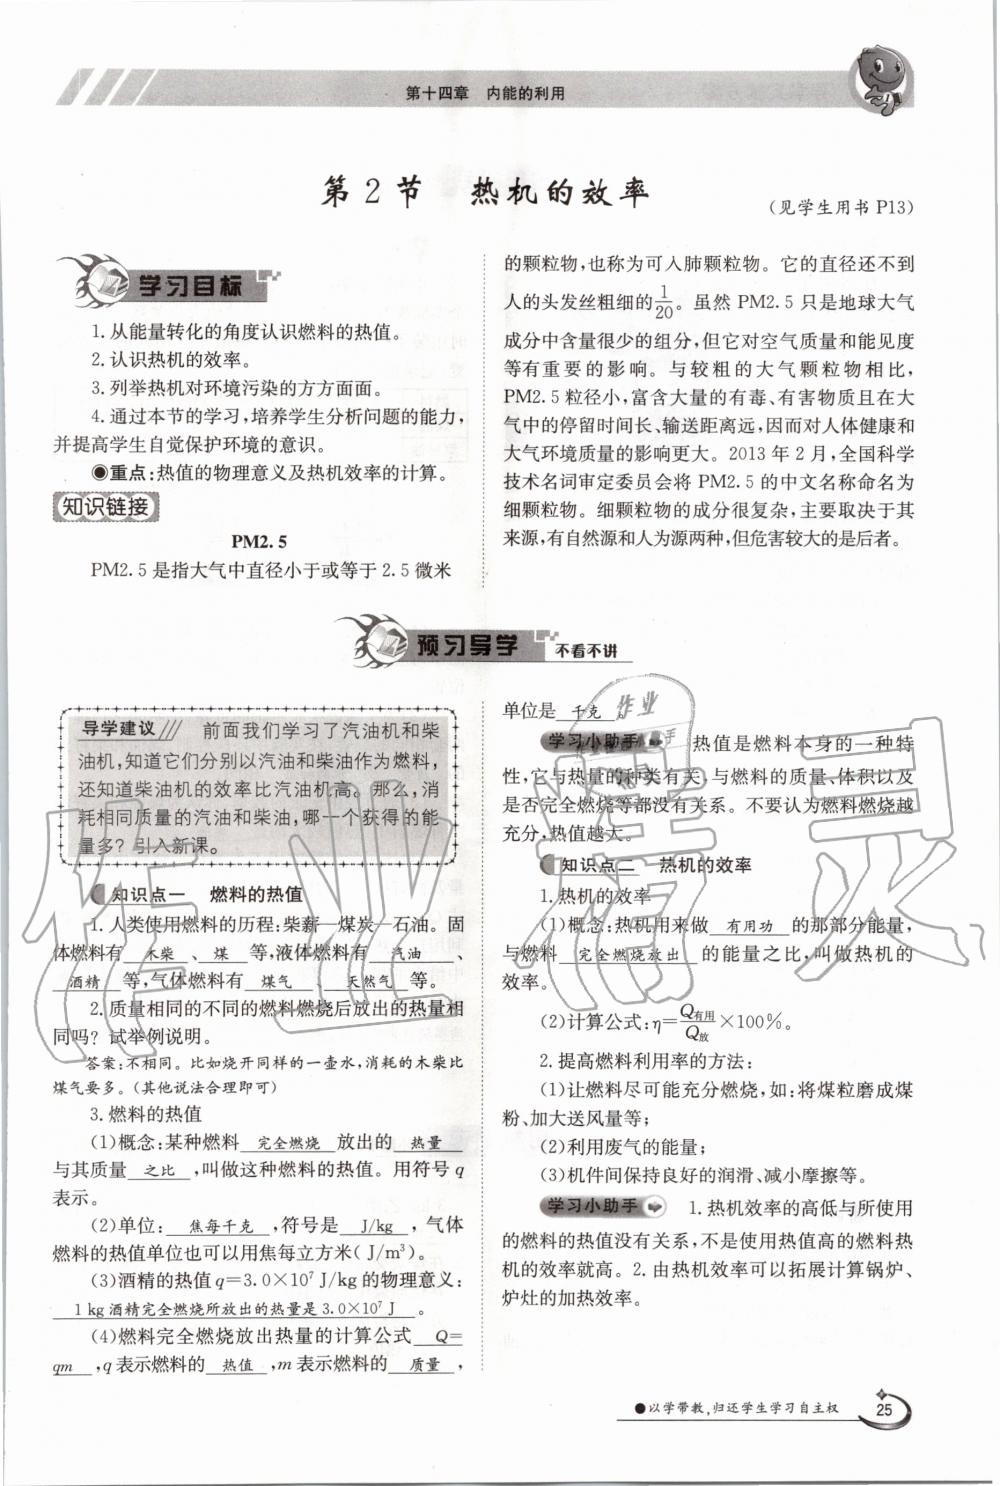 第十四章 内能的利用
第2节 热机的效率
(见学生用书 P13)
学习目标
1.从能量转化的角度认识燃料的热值。
2.认识热机的效率。
3.列举热机对环境污染的方方面面。
4.通过本节的学习,培养学生分析问题的能力,
并提高学生自觉保护环境的意识。
◉重点:热值的物理意义及热机效率的计算。
知识链接
PM2.5
PM2.5是指大气中直径小于或等于2.5微米
的颗粒物,也称为可入肺颗粒物。它的直径还不到
人的头发丝粗细的1/20。虽然 PM2.5 只是地球大气
成分中含量很少的组分,但它对空气质量和能见度
等有重要的影响。与较粗的大气颗粒物相比,
PM2.5粒径小,富含大量的有毒、有害物质且在大
气中的停留时间长、输送距离远,因而对人体健康和
大气环境质量的影响更大。2013年2月,全国科学
技术名词审定委员会将 PM2.5 的中文名称命名为
细颗粒物。细颗粒物的成分很复杂,主要取决于其
来源,有自然源和人为源两种,但危害较大的是后者。
预习导学 不看不讲
导学建议 前面我们学习了汽油机和柴
油机,知道它们分别以汽油和柴油作为燃料,
还知道柴油机的效率比汽油机高。那么,消
耗相同质量的汽油和柴油,哪一个获得的能
量多?引入新课。
知识点一 燃料的热值
1.人类使用燃料的历程:柴薪—煤炭—石油。固
体燃料有 木柴 、 煤 等,液体燃料有 汽油 、
酒精 等,气体燃料有 煤气 、 天然气 等。
2.质量相同的不同的燃料燃烧后放出的热量相
同吗?试举例说明。
答案:不相同。比如烧开同样的一壶水,消耗的木柴比
煤气要多。(其他说法合理即可)
3.燃料的热值
(1)概念:某种燃料 完全燃烧 放出的 热量
与其质量 之比 ,叫做这种燃料的热值。用符号q
表示。
(2)单位: 焦每千克 ,符号是 J/kg ,气体
燃料的热值单位也可以用焦每立方米(J/m³)。
(3)酒精的热值q=3.0×10⁷ J/kg的物理意义:
1 kg酒精完全燃烧所放出的热量是3.0×10⁷ J 。
(4)燃料完全燃烧放出热量的计算公式 Q=
qm ,q表示燃料的 热值 ,m表示燃料的 质量 ,
单位是 千克 。
学习小助手 热值是燃料本身的一种特
性,它与热量的种类有关,与燃料的质量、体积以及
是否完全燃烧等都没有关系。不要认为燃料燃烧越
充分,热值越大。
知识点二 热机的效率
1.热机的效率
(1)概念:热机用来做 有用功 的那部分能量,
与燃料 完全燃烧放出 的能量之比,叫做热机的
效率。
(2)计算公式:η=Q有用/Q放×100%。
2.提高燃料利用率的方法:
(1)让燃料尽可能充分燃烧,如:将煤粒磨成煤
粉、加大送风量等;
(2)利用废气的能量;
(3)机件间保持良好的润滑、减小摩擦等。
学习小助手 1.热机效率的高低与所使用
的燃料的热值没有关系,不是使用热值高的燃料热
机的效率就高。2.由热机效率可以拓展计算锅炉、
炉灶的加热效率。
●以学带教,归还学生学习自主权
25
作业精灵